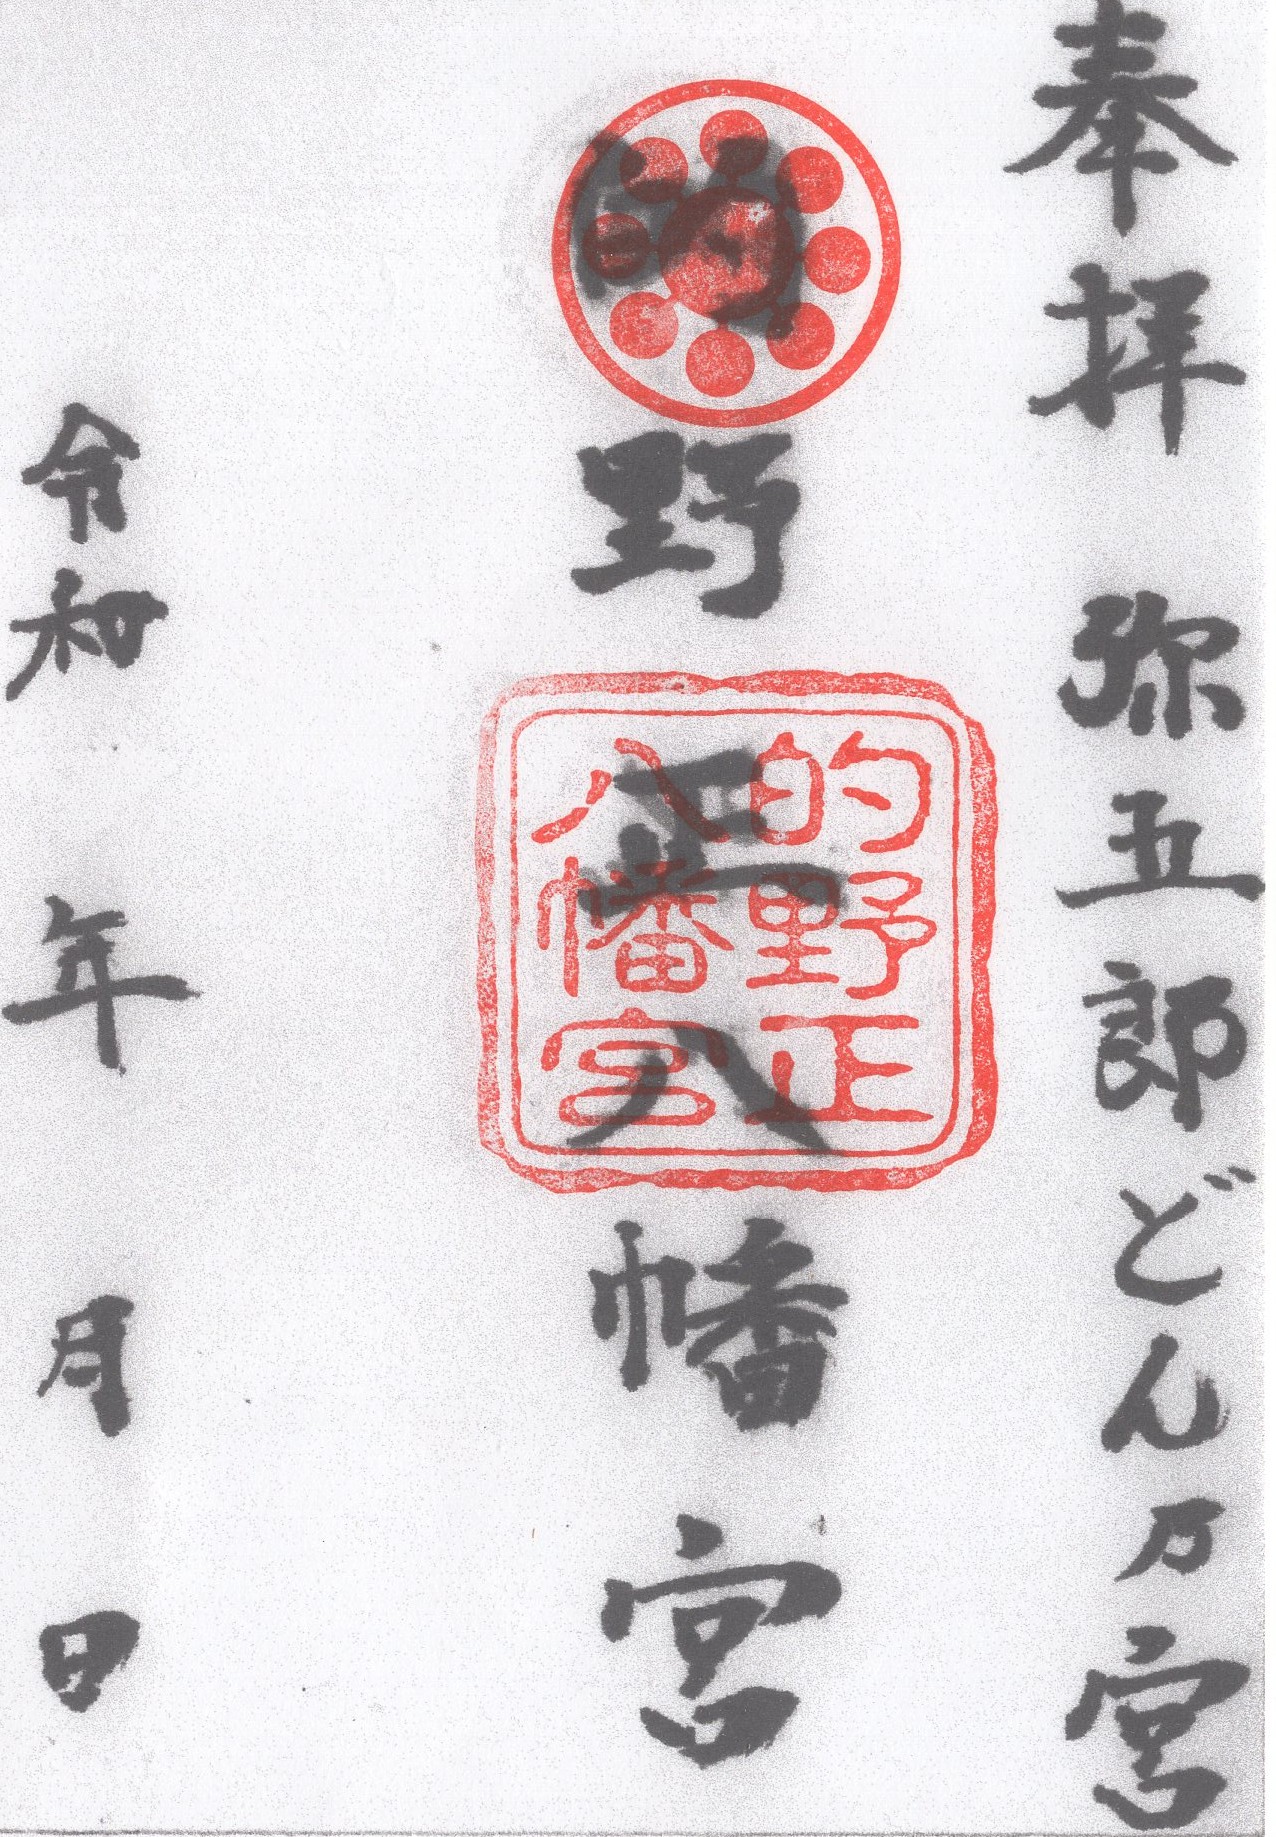 奉拝 弥五郎どん乃宮
的野正八幡宮
的野正
八幡宮
令和 年 月 日